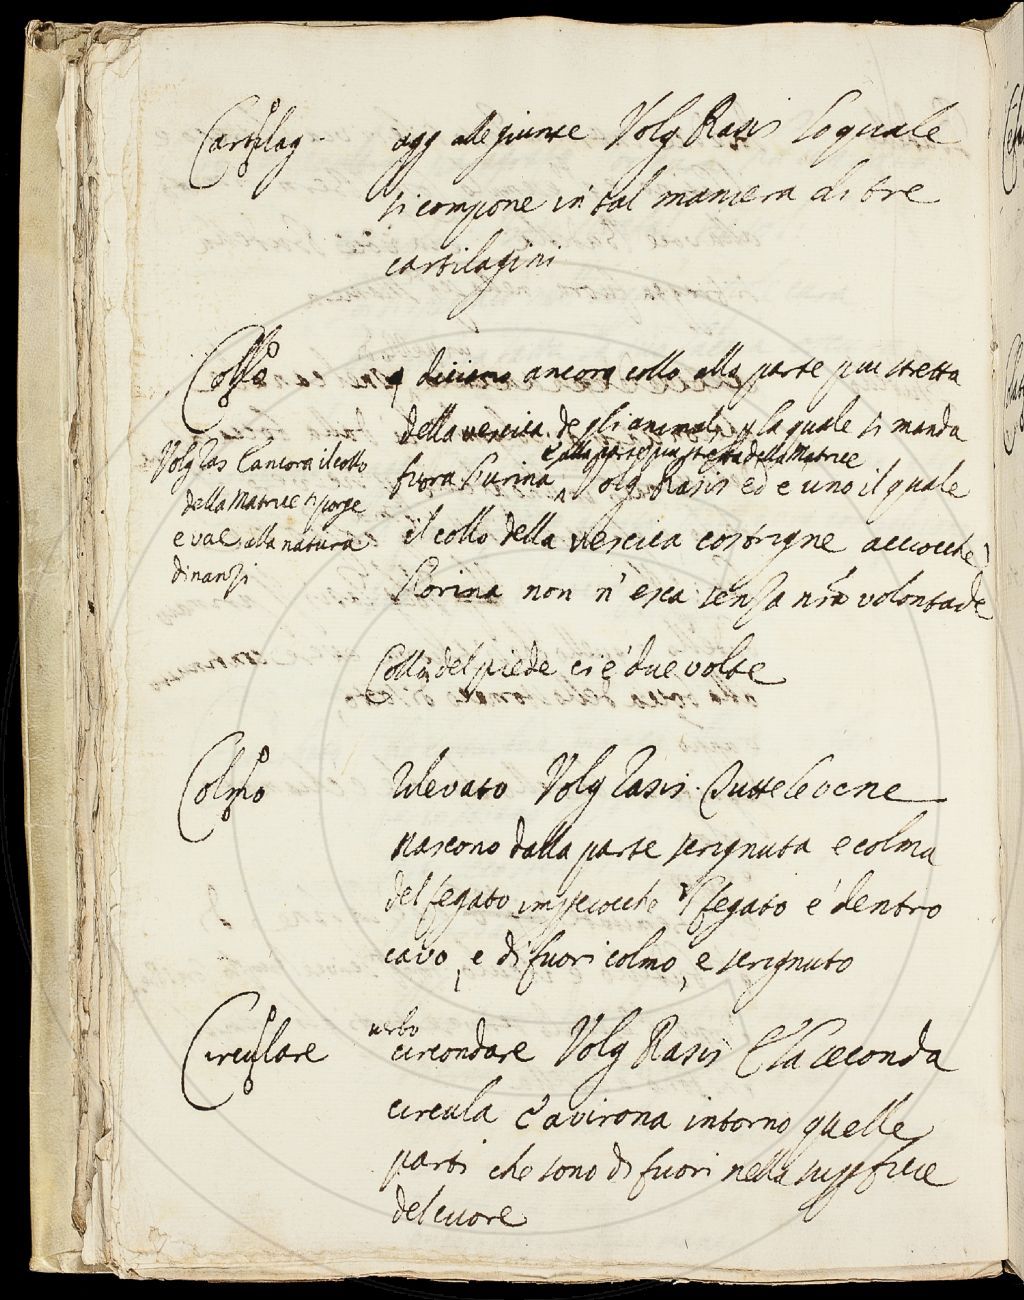 Cartilag. agg alle giunte Volg Rasis Lo quale
si compone in tal maniera di tre
cartilagini
Collo q diciamo ancora collo alla parte piu stretta
della vescica degli animali p la quale si manda
fuora l'urina ^ Volg Rasis ed e uno il quale
e alla parte piu stretta della Matrice
il collo della vescica costrigne accioche
l'orina non n'esca senza nra volontade
Volg Ras E ancora il collo
della Matrice si porge
e vae alla natura
dinanzi
Collo del piede ci è due volte
Colmo Rilevato Volg Rasis. Tutte le vene
nascono dalla parte scrignuta e colma
del fegato imperocche 'l fegato e' dentro
cavo, e di fuori colmo, e scrignuto
Circulare verbo
circondare Volg Rasis E la seconda
circula e avirona intorno quelle
parti che sono di fuori nella supficie
del cuore